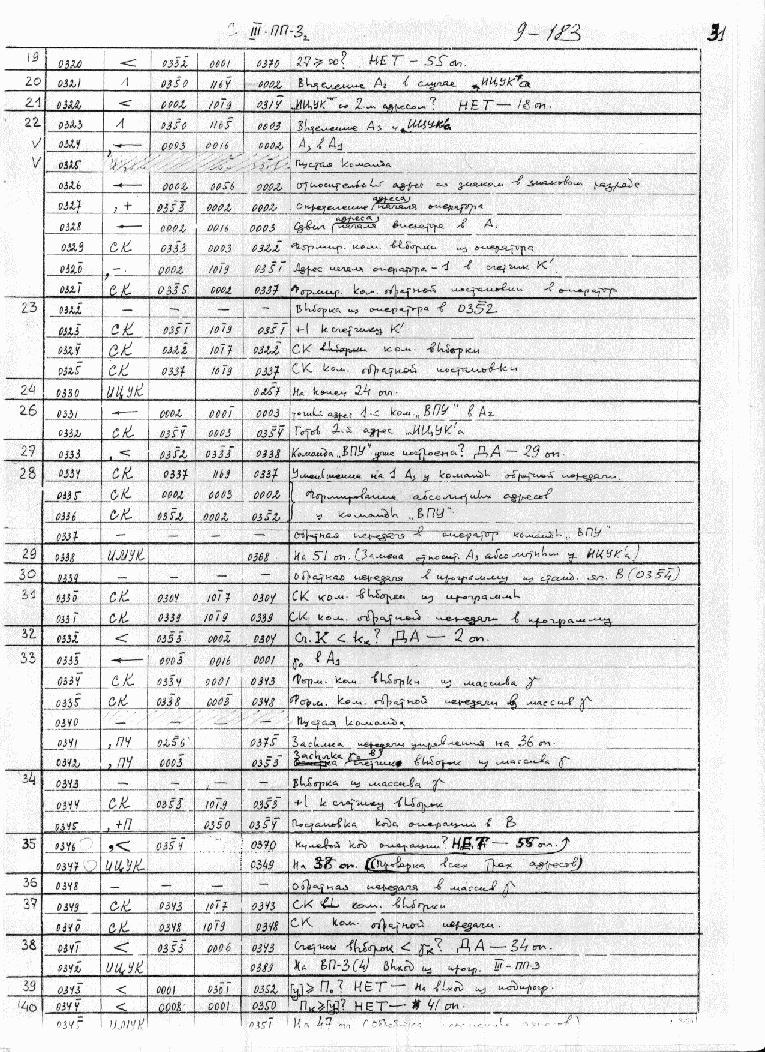 С III-ПП-3₂ 9-183 31
19 0320 < 0352̄ 0001 0370 27 ≥ ∞? НЕТ — 55 оп.
20 0321 Λ 0350̄ 116Ȳ 0002 Выделение А₂ в случае „ИЦУК"а
21 0322 < 0002 101̄9 031Ȳ „ИЦУК" со 2-м адресом? НЕТ — 18 оп.
22 0323 Λ 0350̄ 1165̄ 0003 Выделение А₃ у „ИЦУК"а
V 0324 ,← 0003 0016 0002 А₃ в А₁
V 0325 Пустая команда
0326 ← 0002 0056 0002 относительный адрес со знаком в знаковом разряде
0327 , + 0353̄ 0002 0002 определение адреса начала оператора
0328 ← 0002 0016 0003 Сдвиг адреса начала оператора в А₂
0329 СК 0333̄ 0003 0322̄ Формир. ком. выборки из оператора
0320̄ , - 0002 101̄9 0351̄ Адрес начала оператора - 1 в счетчик К'
0321̄ СК 0335̄ 0002 0337 Формир. ком. обратной постановки в оператор
23 0322̄ — — — — Выборка из оператора в 0352̄
0323̄ СК 0351̄ 101̄9 0351̄ +1 к счетчику К'
032Ȳ СК 0322̄ 101̄7 0322̄ СК ком. выборки
0325̄ СК 0337 101̄9 0337 СК ком. обратной постановки
24 0330 ИЦУК 0267 На конец 24 оп.
26 0331 ← 0002 0001̄ 0003 адрес 1-й ком. „ВПУ" в А₂
0332 СК 035Ȳ 0003 035Ȳ Готов 2-й адрес „ИЦУК"а
27 0333 , < 0352̄ 0333̄ 0338 Команда „ВПУ" уже построена? ДА — 29 оп.
28 0334 СК 0337 1169 0337 Уменьшение на 1 А₃ у команды обратной передачи.
0335 СК 0002 0003 0002 Формирование абсолютных адресов
0336 СК 0352̄ 0002 0352̄ у команды „ВПУ"
0337 — — — — обратная передача в оператор команды „ВПУ"
29 0338 ИЦУК 0368 На 51 оп. (Замена относит. А₃ абсолютным у ИЦУК'а)
30 0339 — — — — обратная передача в программу из станд. яч. В (035Ȳ)
31 0330̄ СК 0304 101̄7 0304 СК ком. выборки из программы
0331̄ СК 0339 101̄9 0339 СК ком. обратной передачи в программу
32 0332̄ < 0353̄ 0002̄ 0304 Сч. К < Kк? ДА — 2 оп.
33 0333̄ ← 0003̄ 0016 0001 γ₀ в А₁
033Ȳ СК 033Ȳ 0001 0343 Форм. ком. выборки из массива γ
0335̄ СК 0338̄ 0003̄ 0348 Форм. ком. обратной передачи в массив γ
0340 — — — — Пустая команда
0341 , ПУ 0256 0375̄ Засылка передачи управления на 36 оп.
0342 , ПУ 0003̄ 0353̄ Засылка γ₀ в счетчик выборок из массива γ
34 0343 — — — — Выборка из массива γ
0344 СК 0353̄ 101̄9 0353̄ +1 к счетчику выборок
0345 , +П 0350̄ 035Ȳ Постановка кода операции в В
35 0346 , < 035Ȳ 0370 Нулевой код операции? НЕТ — 55 оп.
0347 ИЦУК 0349 На 38 оп. (Проверка всех трех адресов)
36 0348 — — — — Обратная передача в массив γ
37 0349 СК 0343 101̄7 0343 СК ком. выборки
0340̄ СК 0348 101̄9 0348 СК ком. обратной передачи.
38 0341̄ < 0353̄ 0006 0343 Счетчик выборок < γк? ДА — 34 оп.
0342̄ ИЦУК 0383 На ВП-3(4) Выход из прогр. III-ПП-3
39 0343̄ < 0001 0301̄ 0352 [y] ≥ П₀? НЕТ — На выход из подпрогр.
40 034Ȳ < 0008 0001 0350 Пк ≥ [y]? НЕТ — 41 оп.
0345̄ ИЦУК 0351 На 47 оп.